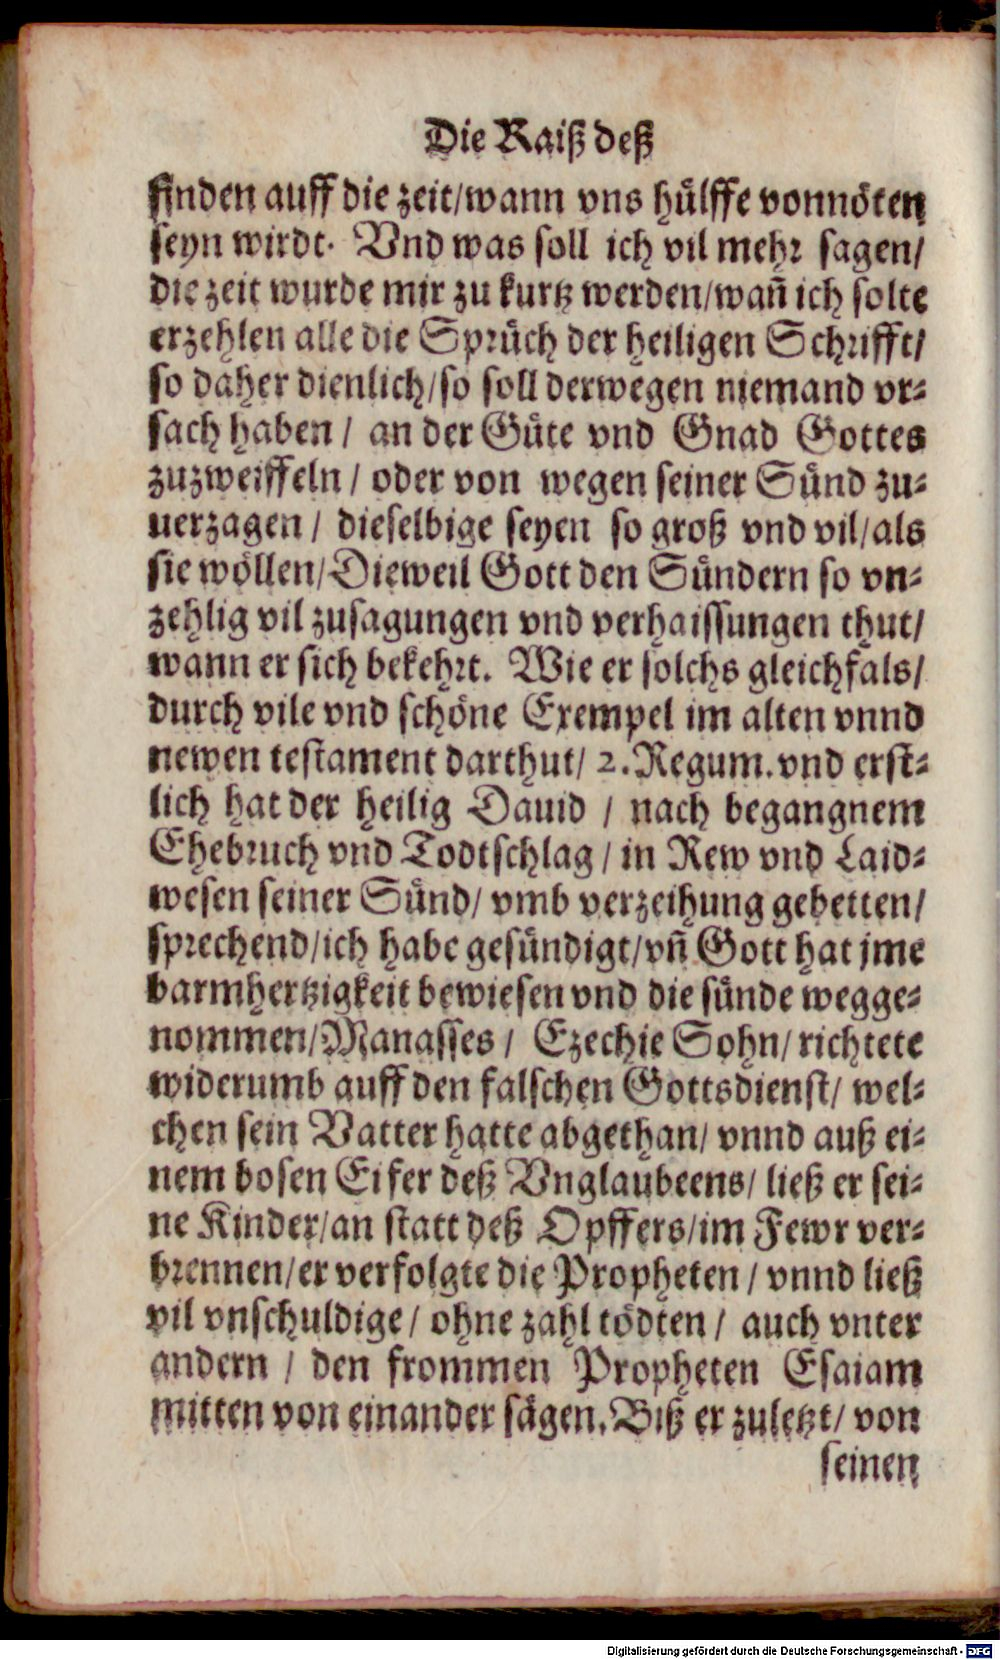 Die Raiß deß
finden auff die zeit/wann vns hülffe vonnöten
seyn wirdt. Vnd was soll ich vil mehr sagen/
die zeit wurde mir zu kurtz werden/wañ ich solte
erzehlen alle die Sprüch der heiligen Schrifft/
so daher dienlich/so soll derwegen niemand vr-
sach haben / an der Güte vnd Gnad Gottes
zuzweiffeln / oder von wegen seiner Sünd zu-
uerzagen / dieselbige seyen so groß vnd vil/als
sie wöllen/Dieweil Gott den Sündern so vn-
zehlig vil zusagungen vnd verhaissungen thut/
wann er sich bekehrt. Wie er solchs gleichfals/
durch vile vnd schöne Exempel im alten vnnd
newen testament darthut/ 2. Regum. vnd erst-
lich hat der heilig Dauid / nach begangnem
Ehebruch vnd Todtschlag / in Rew vnd Laid-
wesen seiner Sünd/ vmb verzeihung gebetten/
sprechend/ich habe gesündigt/vñ Gott hat jme
barmhertzigkeit bewiesen vnd die sünde wegge-
nommen/Manasses / Ezechie Sohn/ richtete
widerumb auff den falschen Gottsdienst/ wel-
chen sein Vatter hatte abgethan/ vnnd auß ei-
nem bosen Eifer deß Vnglaubeens/ ließ er sei-
ne Kinder/an statt deß Opffers/im Fewr ver-
brennen/er verfolgte die Propheten / vnnd ließ
vil vnschuldige / ohne zahl tödten / auch vnter
andern / den frommen Propheten Esaiam
mitten von einander sägen. Biß er zuletzt/ von
seinen
Digitalisierung gefördert durch die Deutsche Forschungsgemeinschaft - DFG